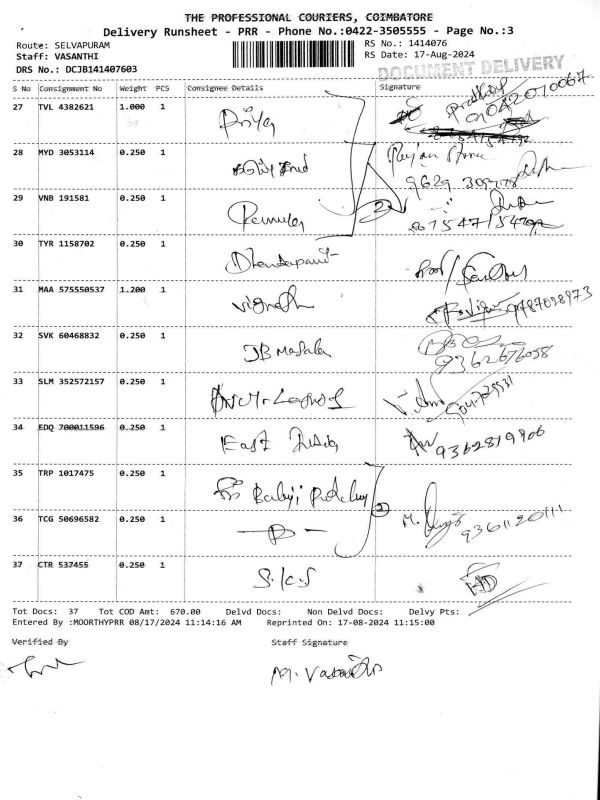 THE PROFESSIONAL COURIERS, COIMBATORE
Delivery Runsheet - PRR - Phone No.:0422-3505555 - Page No.:3
Route: SELVAPURAM RS No.: 1414076
Staff: VASANTHI RS Date: 17-Aug-2024
DRS No.: DCJB141407603 DOCUMENT DELIVERY
S No Consignment No Weight PCS Consignee Details Signature
27 TVL 4382621 1.000 1 Priya 9042070067
28 MYD 3053114 0.250 1
29 VNB 191581 0.250 1 2
30 TYR 1158702 0.250 1 Dhandapani
31 MAA 575550537 1.200 1 Vignesh 9787028973
32 SVK 60468832 0.250 1 JB Masala 9362676058
33 SLM 352572157 0.250 1
34 EDQ 700011596 0.250 1 East India 9362819906
35 TRP 1017475 0.250 1 Sri Balaji
36 TCG 50696582 0.250 1 2 M. 9361120111
37 CTR 537455 0.250 1
Tot Docs: 37 Tot COD Amt: 670.00 Delvd Docs: Non Delvd Docs: Delvy Pts:
Entered By :MOORTHYPRR 08/17/2024 11:14:16 AM Reprinted On: 17-08-2024 11:15:00
Verified By Staff Signature
M. Vasanthi